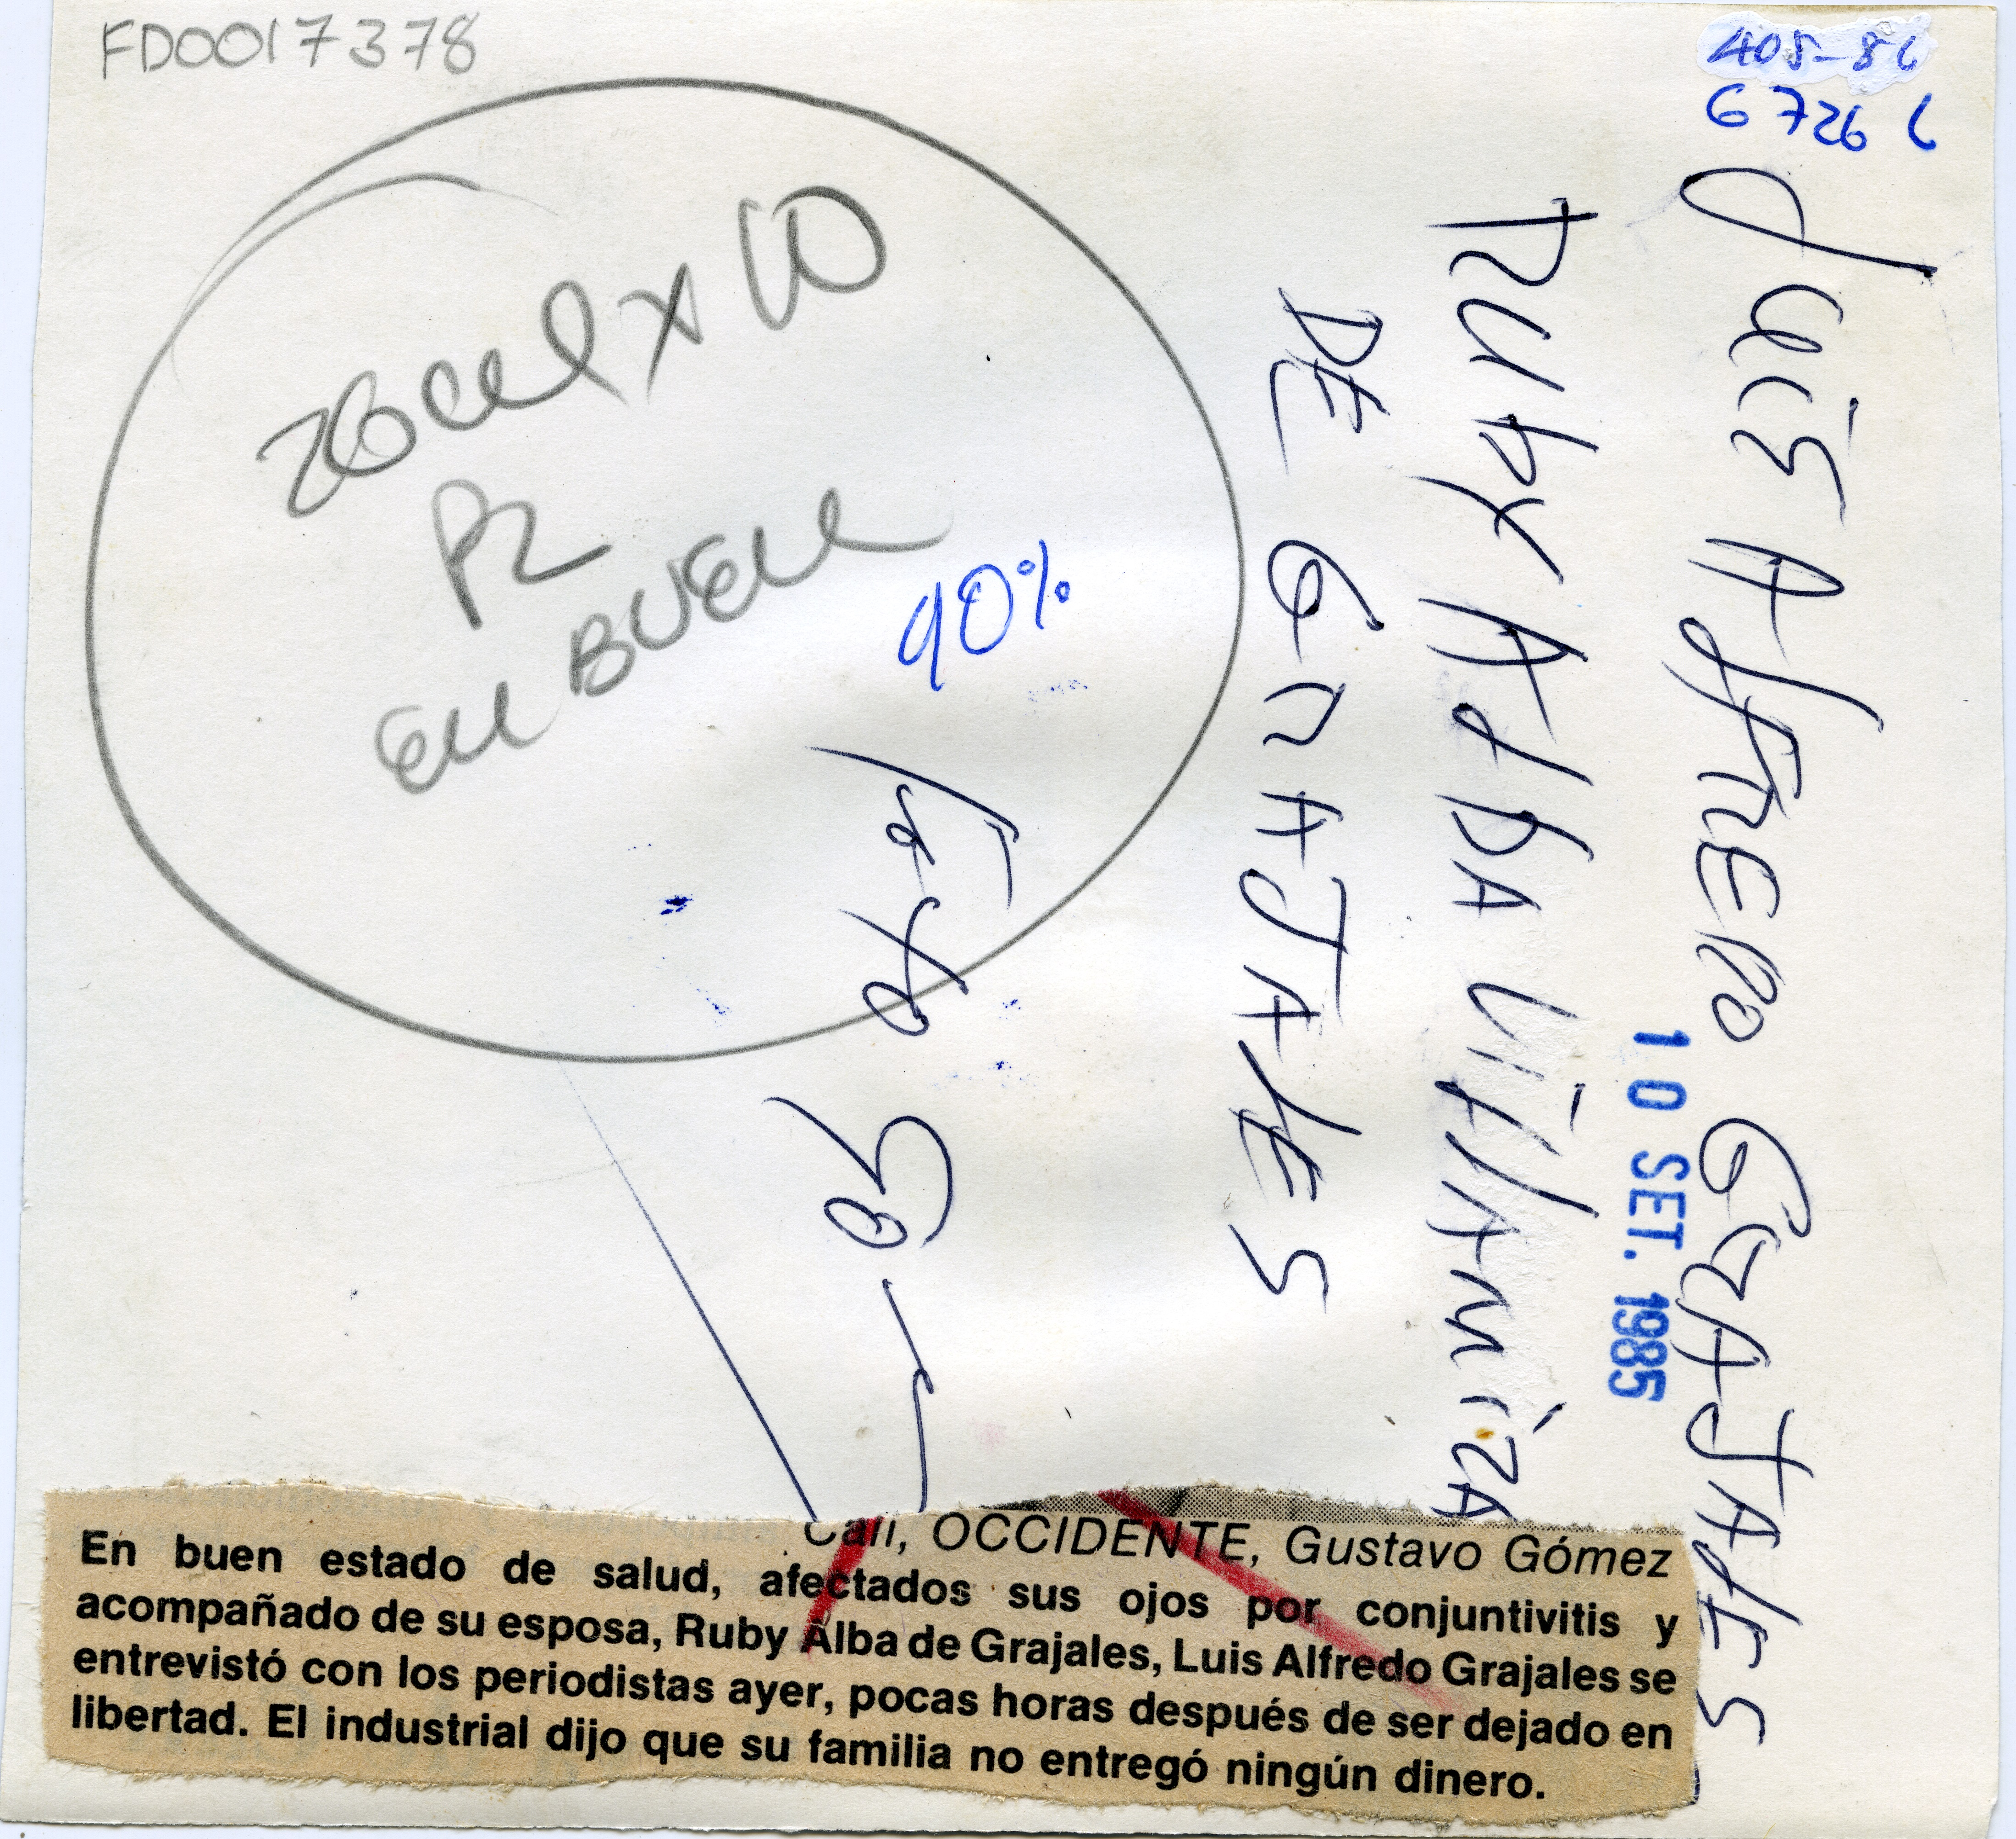 FD0017378
405-86
6726
90%
Luis Alfredo GRAJALES
Ruby Alba Villamiza
DE GRAJALES
10 SET. 1985
Foto
Cali, OCCIDENTE, Gustavo Gómez
En buen estado de salud, afectados sus ojos por conjuntivitis y
acompañado de su esposa, Ruby Alba de Grajales, Luis Alfredo Grajales se
entrevistó con los periodistas ayer, pocas horas después de ser dejado en
libertad. El industrial dijo que su familia no entregó ningún dinero.